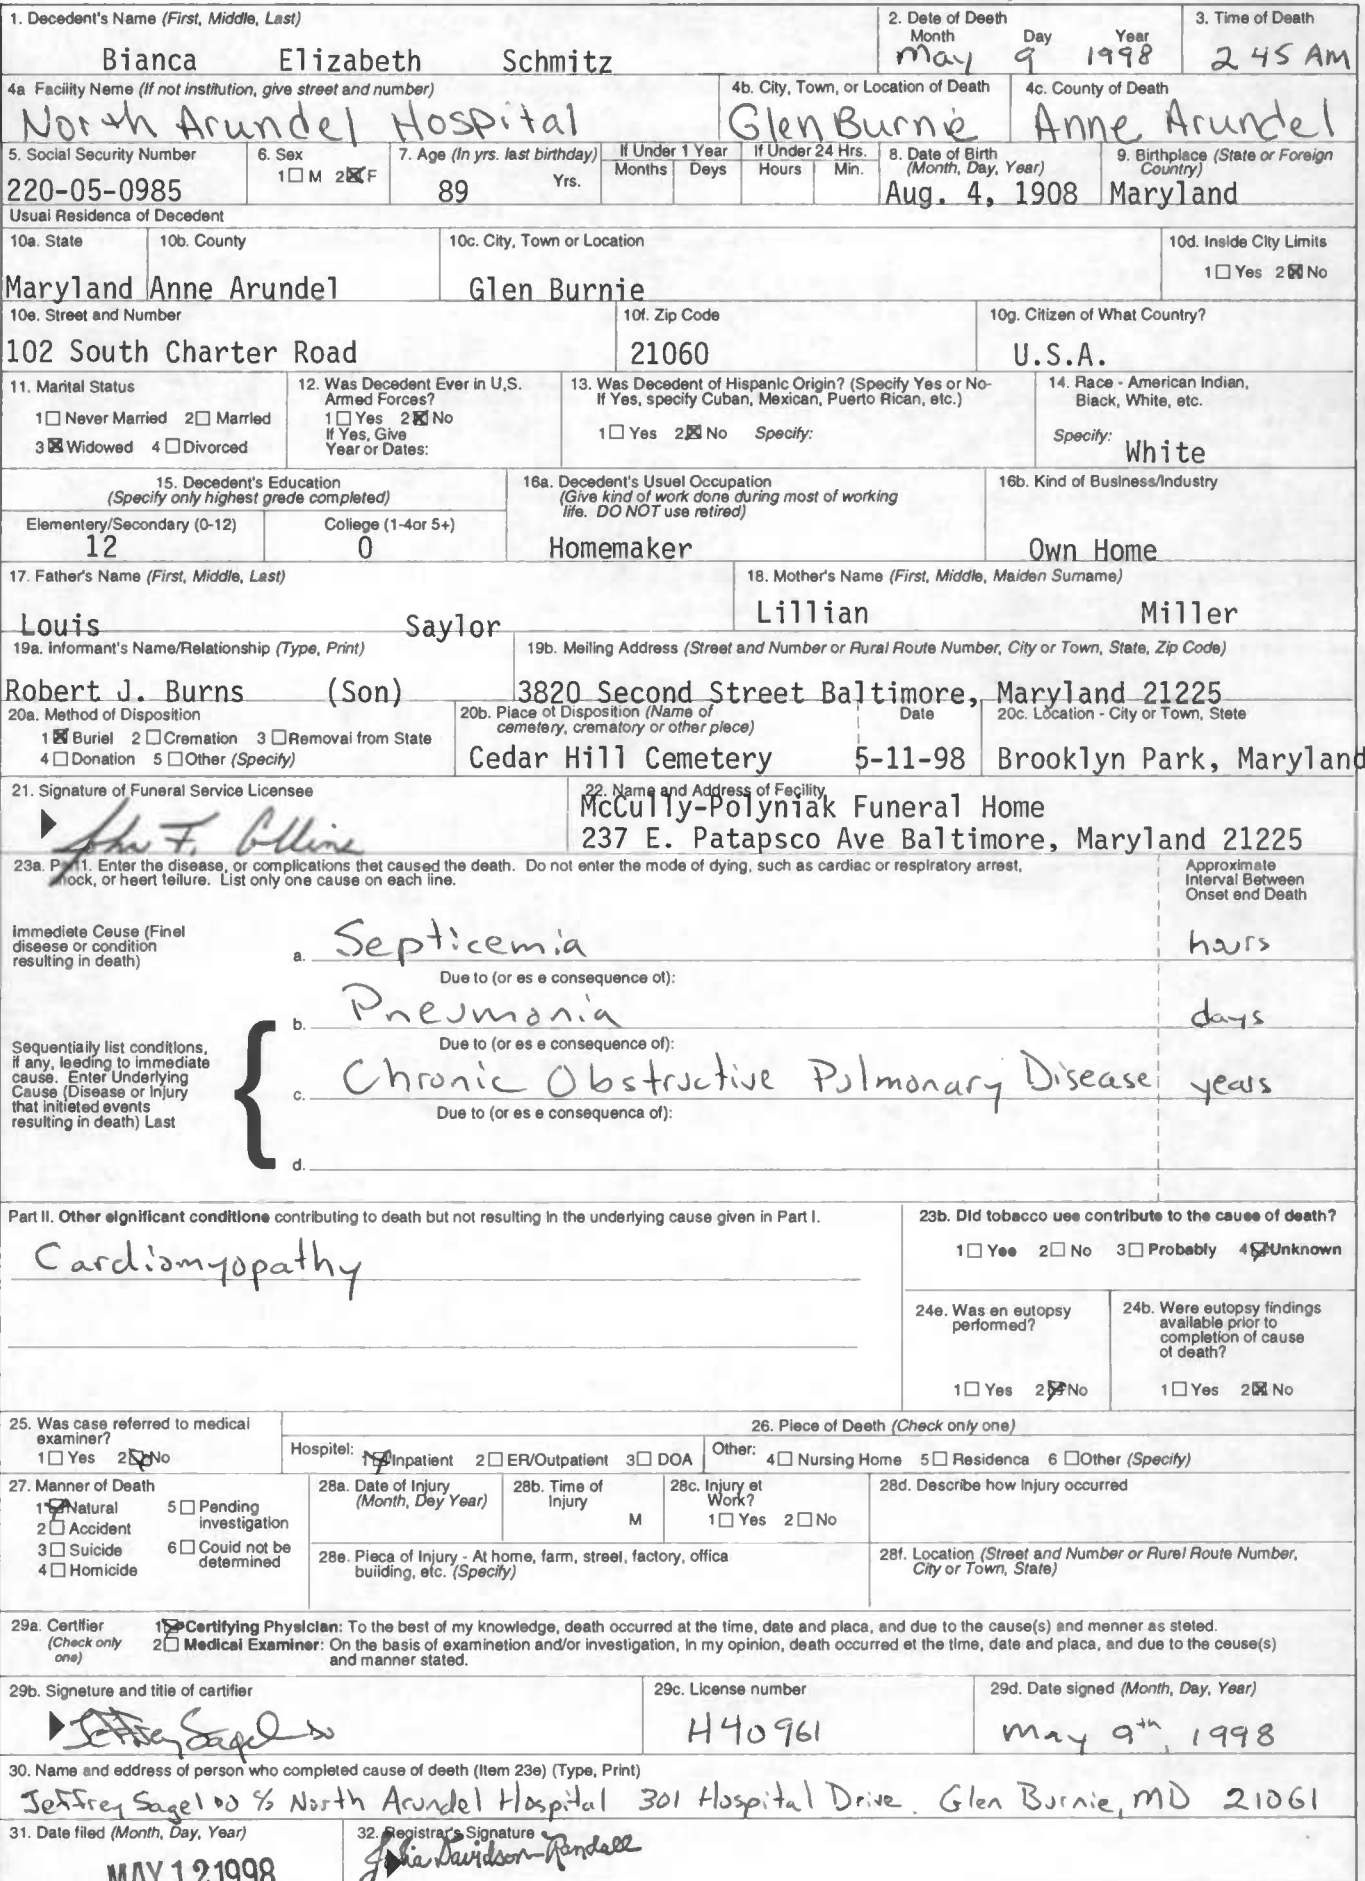 1. Decedent's Name (First, Middle, Last)
Bianca Elizabeth Schmitz
2. Date of Death
Month Day Year
May 9 1998
3. Time of Death
2 45 AM
4a Facility Name (If not institution, give street and number)
North Arundel Hospital
4b. City, Town, or Location of Death
Glen Burnie
4c. County of Death
Anne Arundel
5. Social Security Number
220-05-0985
6. Sex
1☐ M 2☒ F
7. Age (In yrs. last birthday)
89 Yrs.
If Under 1 Year
Months Days
If Under 24 Hrs.
Hours Min.
8. Date of Birth
(Month, Day, Year)
Aug. 4, 1908
9. Birthplace (State or Foreign
Country)
Maryland
Usual Residence of Decedent
10a. State
Maryland
10b. County
Anne Arundel
10c. City, Town or Location
Glen Burnie
10d. Inside City Limits
1☐ Yes 2☒ No
10e. Street and Number
102 South Charter Road
10f. Zip Code
21060
10g. Citizen of What Country?
U.S.A.
11. Marital Status
1☐ Never Married 2☐ Married
3☒ Widowed 4☐ Divorced
12. Was Decedent Ever in U.S.
Armed Forces?
1☐ Yes 2☒ No
If Yes, Give
Year or Dates:
13. Was Decedent of Hispanic Origin? (Specify Yes or No-
If Yes, specify Cuban, Mexican, Puerto Rican, etc.)
1☐ Yes 2☒ No Specify:
14. Race - American Indian,
Black, White, etc.
Specify: White
15. Decedent's Education
(Specify only highest grade completed)
Elementary/Secondary (0-12)
12
College (1-4or 5+)
0
16a. Decedent's Usual Occupation
(Give kind of work done during most of working
life. DO NOT use retired)
Homemaker
16b. Kind of Business/Industry
Own Home
17. Father's Name (First, Middle, Last)
Louis Saylor
18. Mother's Name (First, Middle, Maiden Surname)
Lillian Miller
19a. Informant's Name/Relationship (Type, Print)
Robert J. Burns (Son)
19b. Mailing Address (Street and Number or Rural Route Number, City or Town, State, Zip Code)
3820 Second Street Baltimore, Maryland 21225
20a. Method of Disposition
1☒ Burial 2☐ Cremation 3☐ Removal from State
4☐ Donation 5☐ Other (Specify)
20b. Place of Disposition (Name of
cemetery, crematory or other place)
Cedar Hill Cemetery
Date
5-11-98
20c. Location - City or Town, State
Brooklyn Park, Maryland
21. Signature of Funeral Service Licensee
John F. Collins
22. Name and Address of Facility
McCully-Polyniak Funeral Home
237 E. Patapsco Ave Baltimore, Maryland 21225
23a. Part1. Enter the disease, or complications that caused the death. Do not enter the mode of dying, such as cardiac or respiratory arrest,
shock, or heart failure. List only one cause on each line.
Approximate
Interval Between
Onset and Death
Immediate Cause (Final
disease or condition
resulting in death)
a. Septicemia hours
Due to (or as a consequence of):
b. Pneumonia days
Due to (or as a consequence of):
Sequentially list conditions,
if any, leading to immediate
cause. Enter Underlying
Cause (Disease or Injury
that initiated events
resulting in death) Last
c. Chronic Obstructive Pulmonary Disease years
Due to (or as a consequence of):
d.
Part II. Other significant conditions contributing to death but not resulting in the underlying cause given in Part I.
Cardiomyopathy
23b. Did tobacco use contribute to the cause of death?
1☐ Yes 2☐ No 3☐ Probably 4☒ Unknown
24a. Was an autopsy
performed?
1☐ Yes 2☒ No
24b. Were autopsy findings
available prior to
completion of cause
of death?
1☐ Yes 2☒ No
25. Was case referred to medical
examiner?
1☐ Yes 2☒ No
26. Place of Death (Check only one)
Hospital: 1☒ Inpatient 2☐ ER/Outpatient 3☐ DOA
Other: 4☐ Nursing Home 5☐ Residence 6 ☐ Other (Specify)
27. Manner of Death
1☒ Natural 5☐ Pending
investigation
2☐ Accident
3☐ Suicide 6☐ Could not be
determined
4☐ Homicide
28a. Date of Injury
(Month, Day Year)
28b. Time of
Injury
M
28c. Injury at
Work?
1☐ Yes 2☐ No
28d. Describe how Injury occurred
28e. Place of Injury - At home, farm, street, factory, office
building, etc. (Specify)
28f. Location (Street and Number or Rural Route Number,
City or Town, State)
29a. Certifier
(Check only
one)
1☒ Certifying Physician: To the best of my knowledge, death occurred at the time, date and place, and due to the cause(s) and manner as stated.
2☐ Medical Examiner: On the basis of examination and/or investigation, in my opinion, death occurred at the time, date and place, and due to the cause(s)
and manner stated.
29b. Signature and title of certifier
Jeffrey Sagel DO
29c. License number
H40961
29d. Date signed (Month, Day, Year)
May 9th, 1998
30. Name and address of person who completed cause of death (Item 23a) (Type, Print)
Jeffrey Sagel DO % North Arundel Hospital 301 Hospital Drive. Glen Burnie, MD 21061
31. Date filed (Month, Day, Year)
MAY 12 1998
32. Registrar's Signature
Julia Davidson-Randall